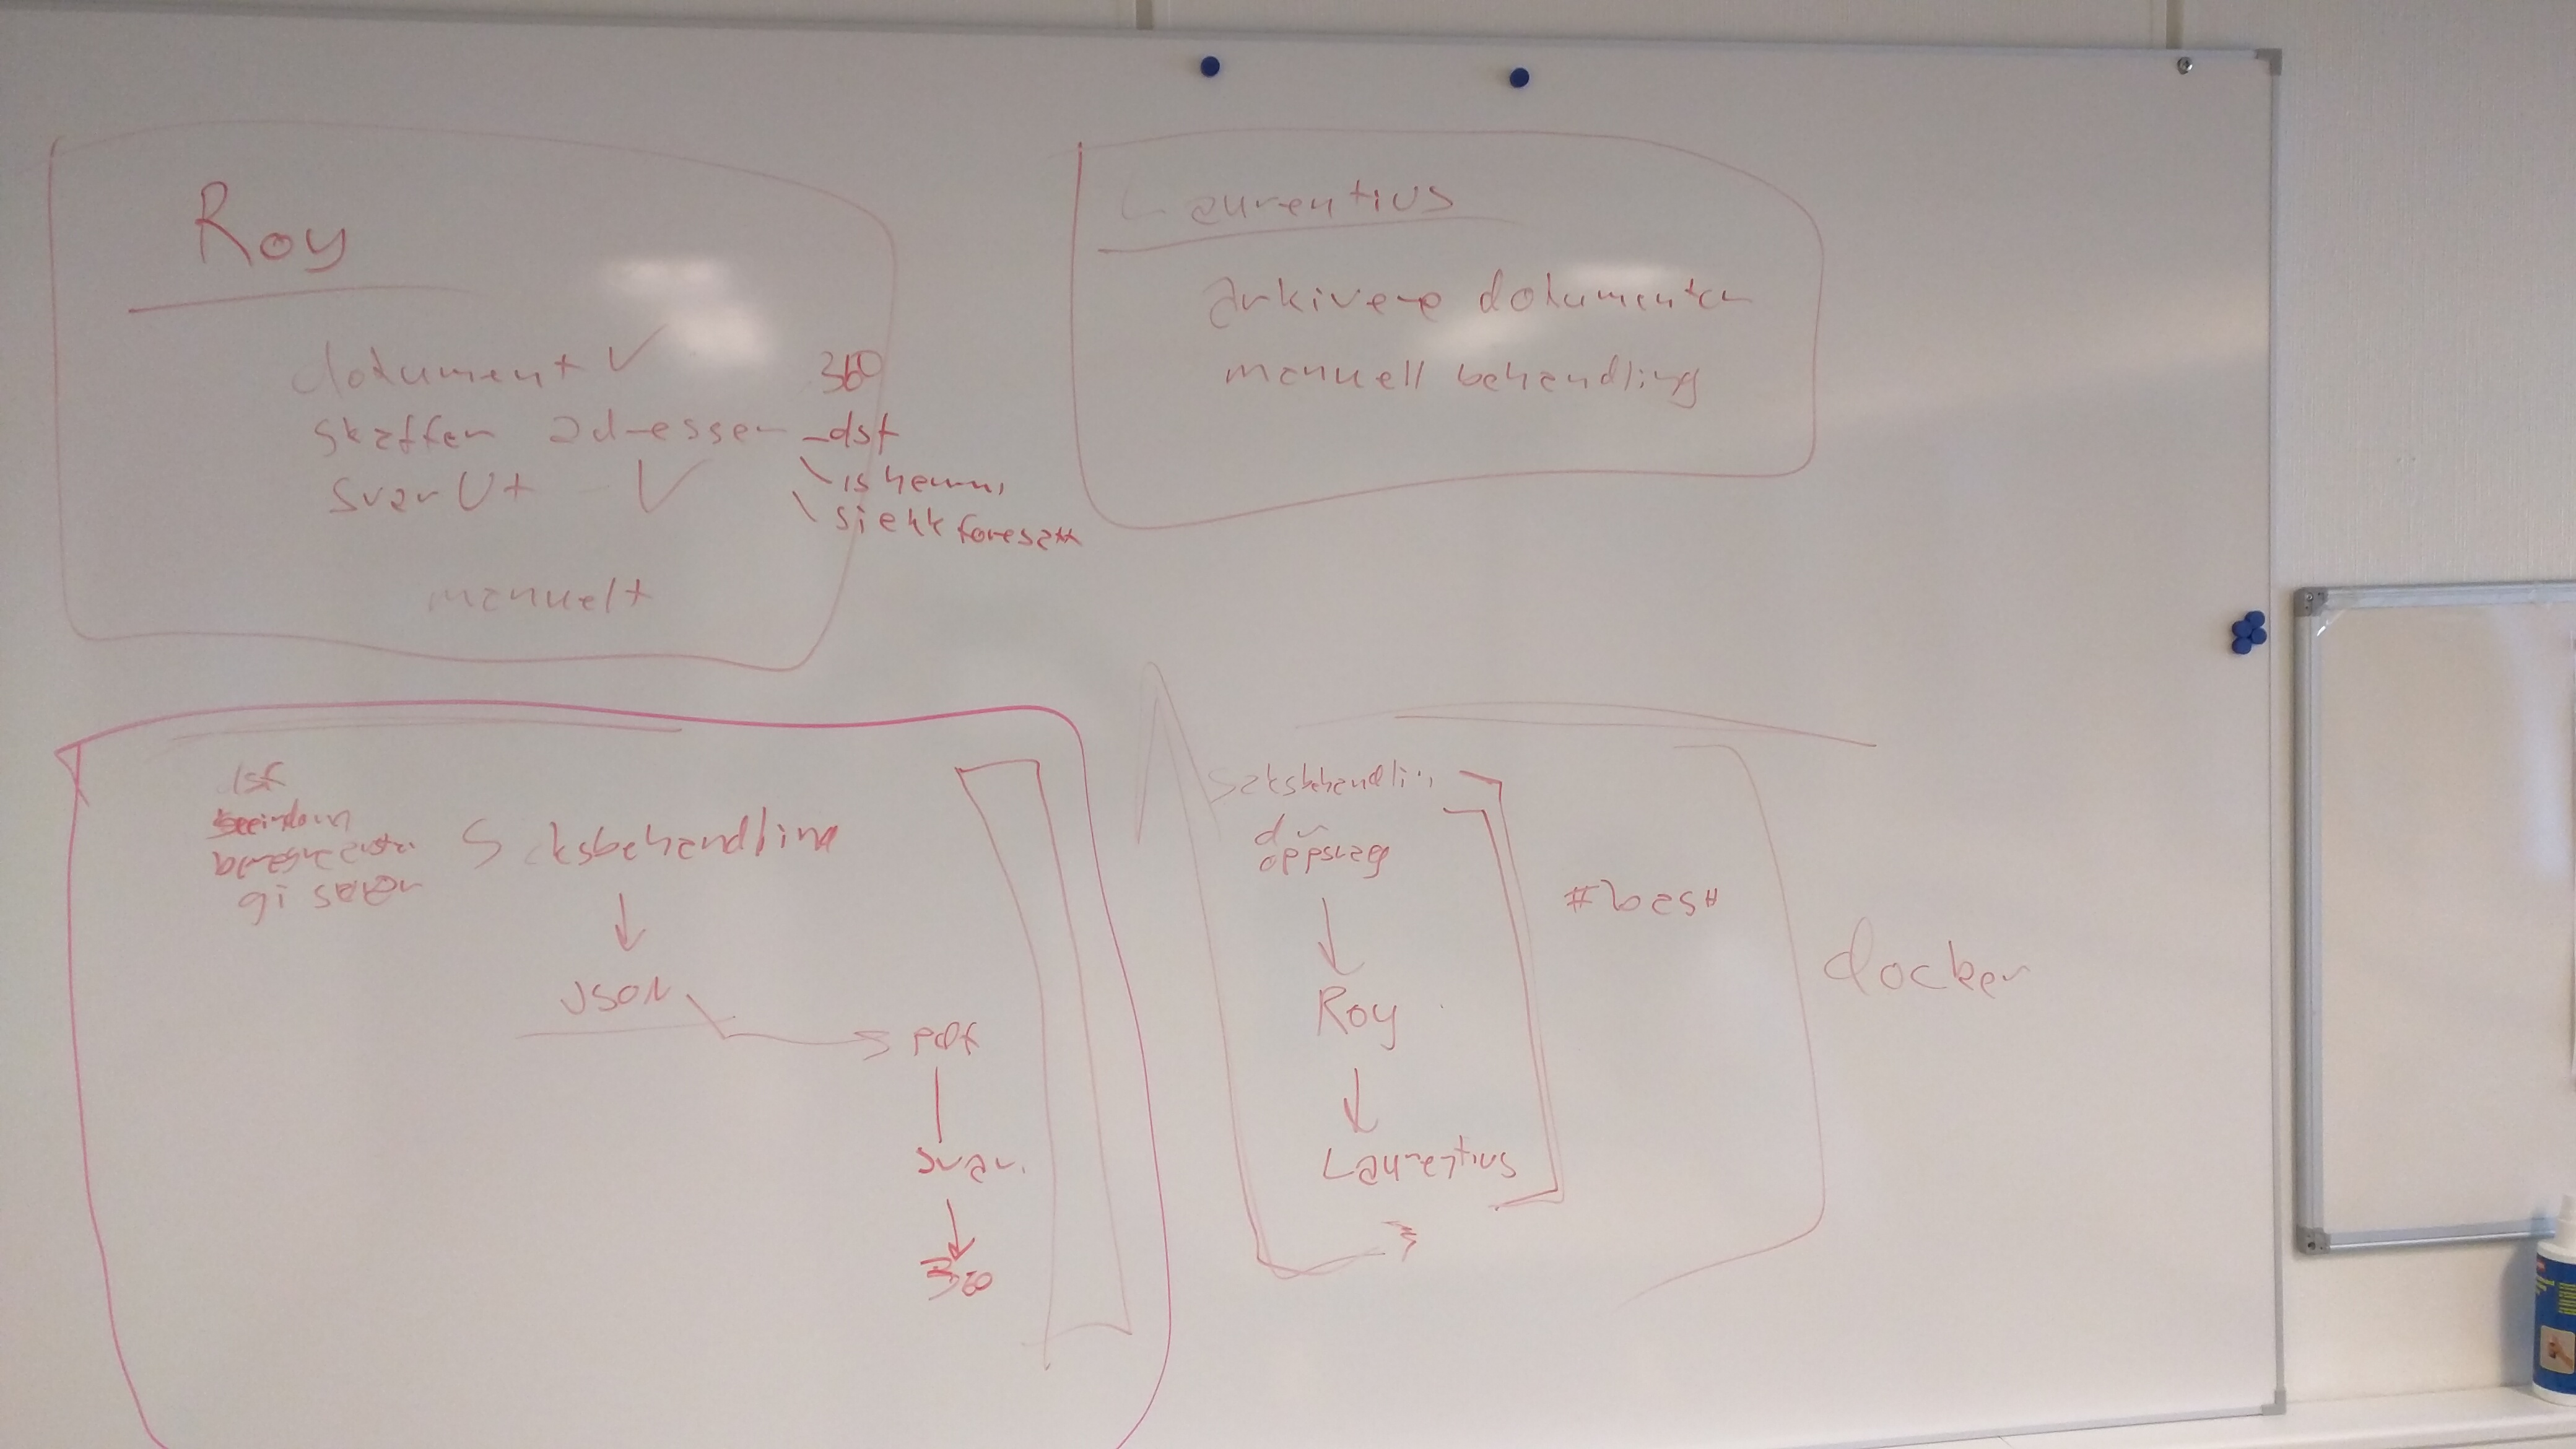 Roy
dokument ✓
360
skaffer adresser - dsf
SvarUt - ✓
\ sjekk foresatt
manuelt
Laurentius
arkivere dokumenter
manuell behandling
dsf
gi svar
Saksbehandling
↓
JSON
→ pdf
svar.
↓
360
Saksbehandlin
oppslag
↓
Roy
↓
Laurentius
docker